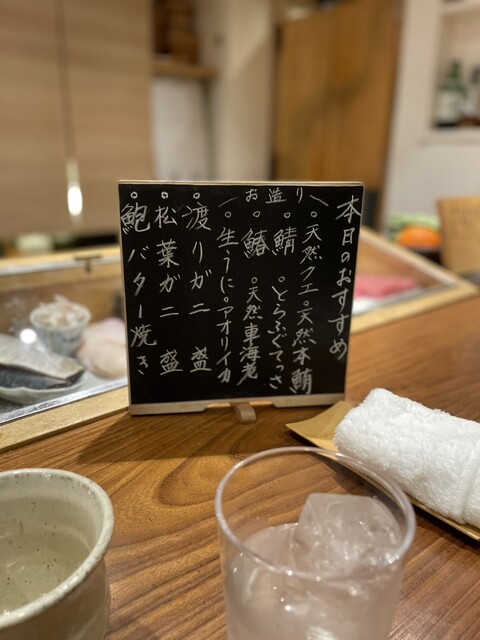 本日のおすすめ
\お造り/
。天然クエ。天然本鮪
。鯖 。とらふぐてっさ
。鰆 。天然車海老
。生うに。アオリイカ
。渡りガニ 盛
。松葉ガニ 盛
。鮑バター焼き